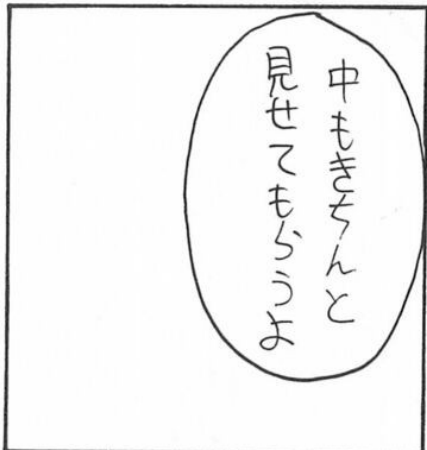 中もきちんと
見せてもらうよ